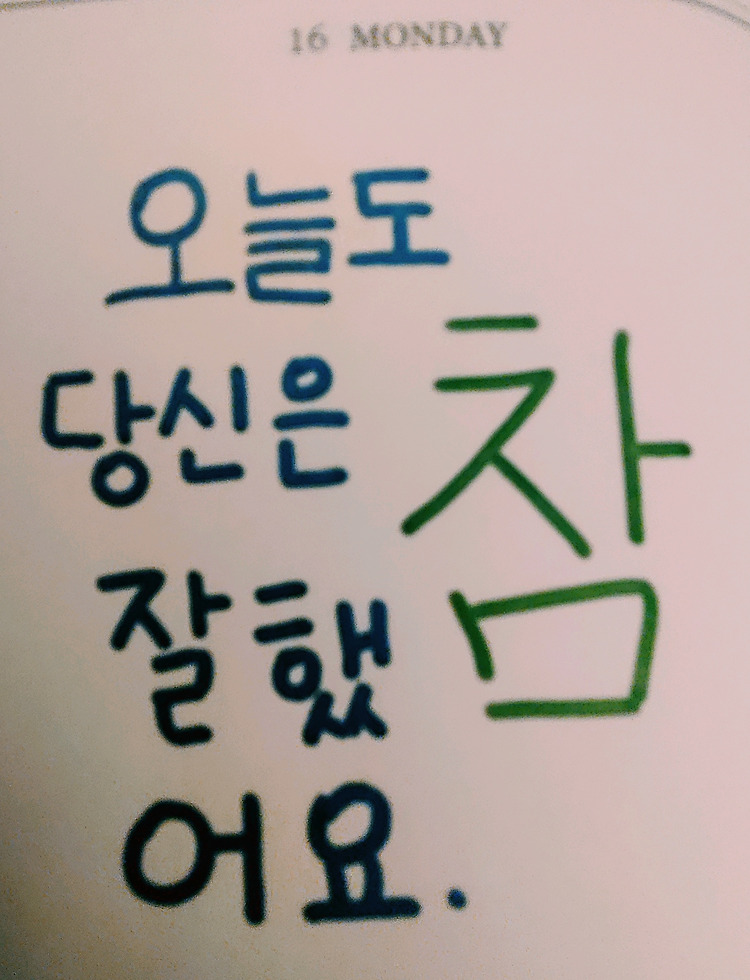 16 MONDAY
오늘도
당신은 참
잘했
어요.